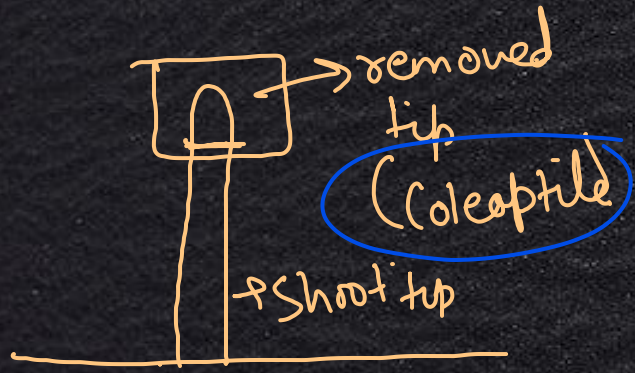 removed
tip
(Coleoptile)
shoot tip